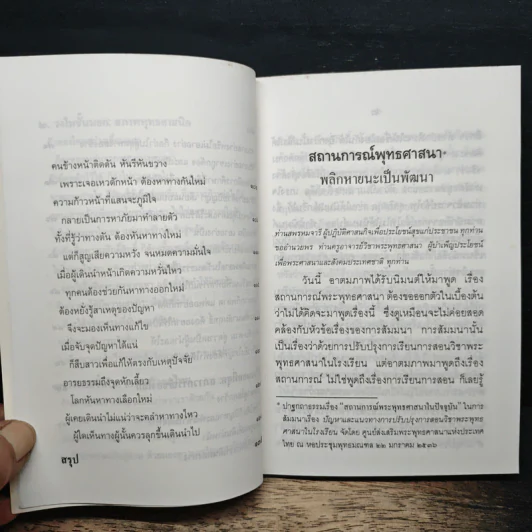 คนข้างหน้าติดตัน หันรีหันขวาง
เพราะเจอเหวดักหน้า ต้องหาทางกันใหม่
ความก้าวหน้าที่แสนจะภูมิใจ
กลายเป็นการหาภัยมาทำลายตัว
ทั้งที่รู้ว่าทางตัน ต้องหันหาทางใหม่
แต่ก็สูญเสียความหวัง จนหมดความมั่นใจ
เมื่อผู้เดินนำหน้าเกิดความหวั่นไหว
ทุกคนต้องช่วยกันหาทางออกใหม่
ต้องหยั่งรู้สาเหตุของปัญหา
จึงจะมองเห็นทางแก้ไข
เมื่อจับจุดปัญหาได้แน่
ก็สืบสาวเพื่อแก้ให้ตรงกับเหตุปัจจัย
อารยธรรมถึงจุดหักเลี้ยว
โลกหันหาทางเลือกใหม่
ผู้เคยเดินนำไม่แน่ว่าจะคลำหาทางไหว
ผู้ใดเห็นทางผู้นั้นควรลุกขึ้นเดินนำไป
สรุป
สถานการณ์พุทธศาสนา*
พลิกหายนะเป็นพัฒนา
ท่านสพรหมจารี ผู้ปฏิบัติศาสนกิจเพื่อประโยชน์สุขแก่ประชาชน ทุกท่าน
ขออำนวยพร ท่านครูอาจารย์วิชาพระพุทธศาสนา ผู้บำเพ็ญประโยชน์
เพื่อพระศาสนาและสังคมประเทศชาติ ทุกท่าน
วันนี้ อาตมภาพได้รับนิมนต์ให้มาพูด เรื่อง
สถานการณ์พระพุทธศาสนา ต้องขอออกตัวในเบื้องต้น
ว่าไม่ได้คิดจะมาพูดเรื่องนี้ ซึ่งดูเหมือนจะไม่ค่อยสอด
คล้องกับหัวข้อเรื่องของการสัมมนา การสัมมนานั้น
เป็นเรื่องว่าด้วยการปรับปรุงการเรียนการสอนวิชาพระ
พุทธศาสนาในโรงเรียน แต่อาตมภาพมาพูดถึงเรื่อง
สถานการณ์ ไม่ใช่พูดถึงเรื่องการเรียนการสอน ก็เลยรู้
* ปาฐกถาธรรมเรื่อง "สถานการณ์พระพุทธศาสนาในปัจจุบัน" ในการ
สัมมนาเรื่อง ปัญหาและแนวทางการปรับปรุงการสอนวิชาพระพุทธ
ศาสนาในโรงเรียน จัดโดย ศูนย์ส่งเสริมพระพุทธศาสนาแห่งประเทศ
ไทย ณ หอประชุมพุทธมณฑล ๒๒ มกราคม ๒๕๓๖